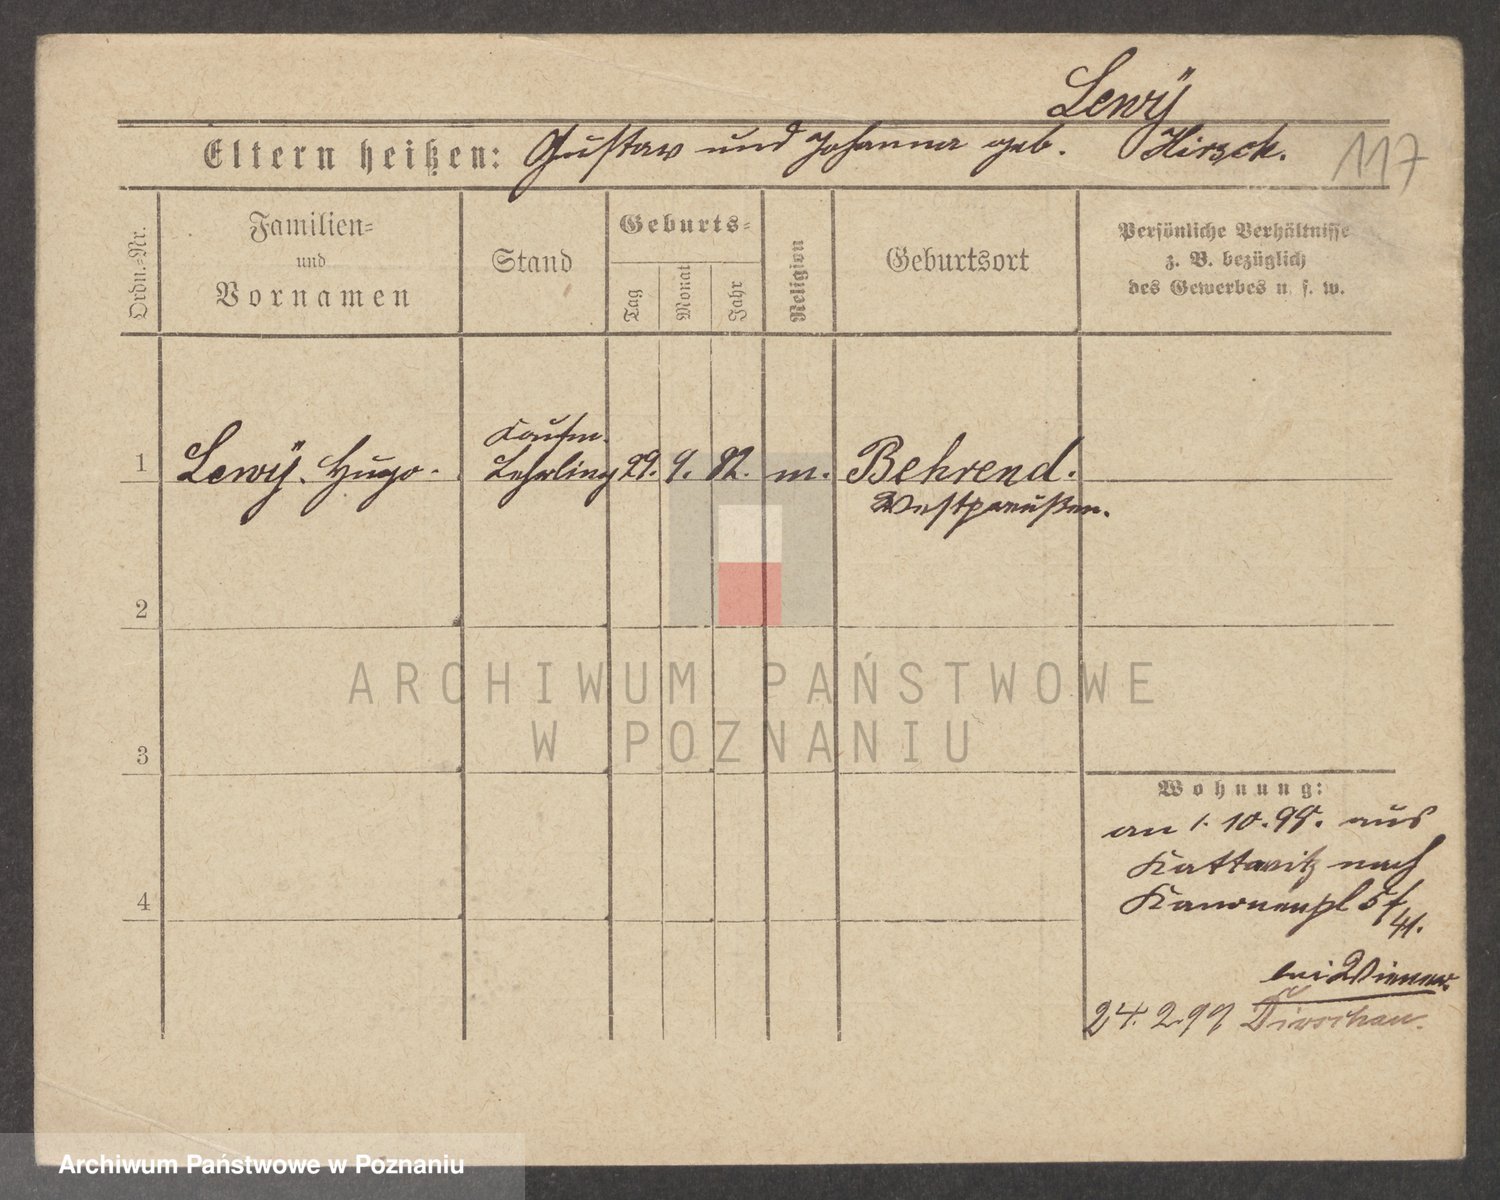 Lewÿ
Eltern heißen: Gustav und Johanna geb. Hirsch. 117
Ordn.-Nr.
Familien-
und
Vornamen
Stand
Geburts-
Tag
Monat
Jahr
Religion
Geburtsort
Persönliche Verhältnisse
z. B. bezüglich
des Gewerbes u. s. w.
Kaufm.
1 Lewÿ. Hugo. Lehrling 29. 9. 82. m. Behrend.
Westpreußen.
2
ARCHIWUM PAŃSTWOWE
W POZNANIU
3
Wohnung:
an 1. 10. 98. aus
Kattowitz nach
4
Kanonenpl 5/
41.
bei Wiener.
24. 2. 99 Dirschau.
Archiwum Państwowe w Poznaniu